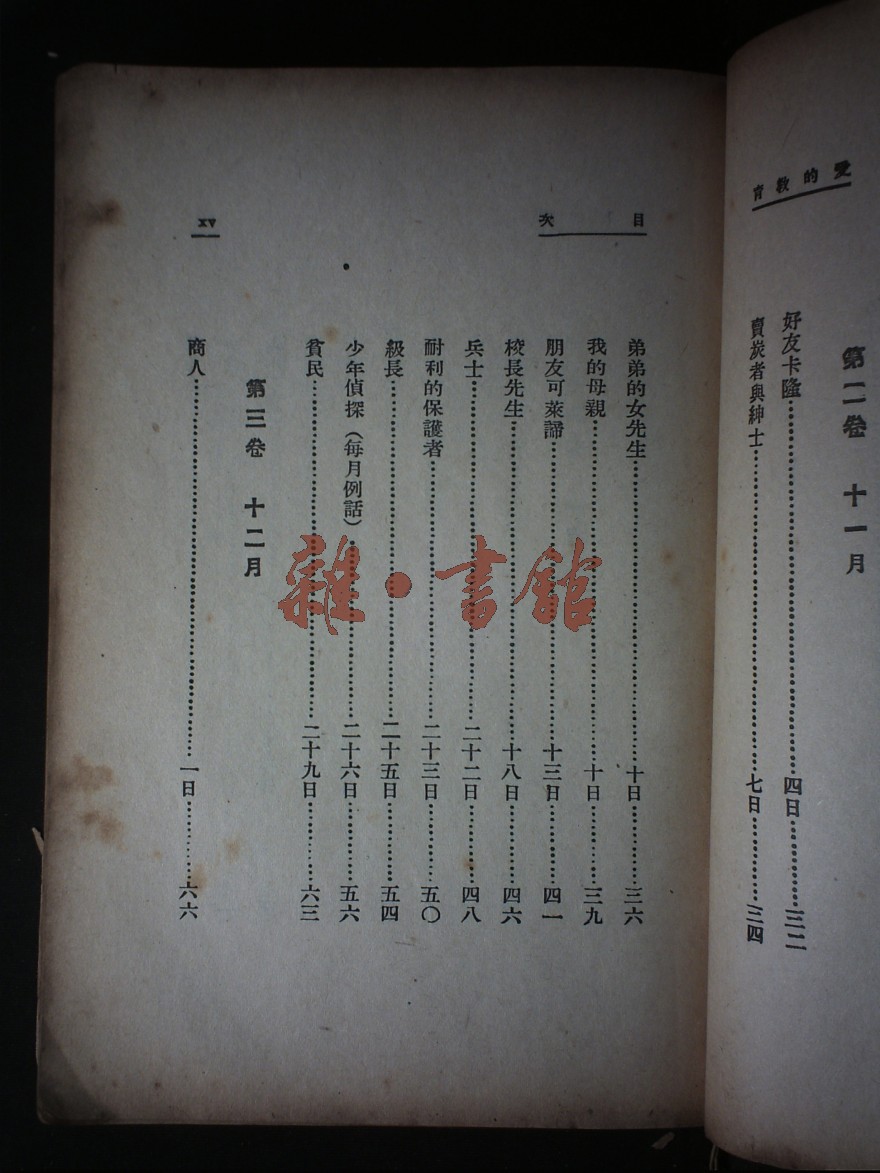 愛的教育
第二卷 十一月
好友卡隆……四日……三二
賣炭者與紳士……七日……三四
目次
xv
弟弟的女先生……十日……三六
我的母親……十日……三九
朋友可萊諦……十三日……四一
校長先生……十八日……四六
兵士……二十二日……四八
耐利的保護者……二十三日……五〇
級長……二十五日……五四
少年偵探（每月例話）……二十六日……五六
貧民……二十九日……六三
第三卷 十二月
商人……一日……六六
雜·書館